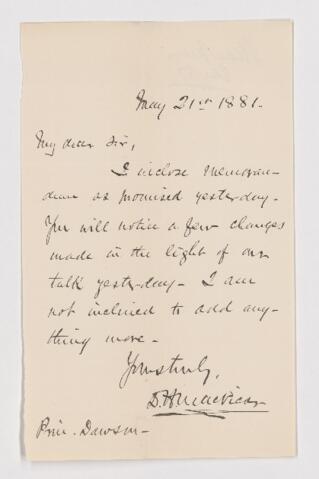 May 21st 1881.
My dear Sir,
I inclose memoran-
dum as promised yesterday.
You will notice a few changes
made in the light of our
talk yesterday. I am
not inclined to add any-
thing more.
Yours truly,
D. H. MacVicar
Prin. Dawson